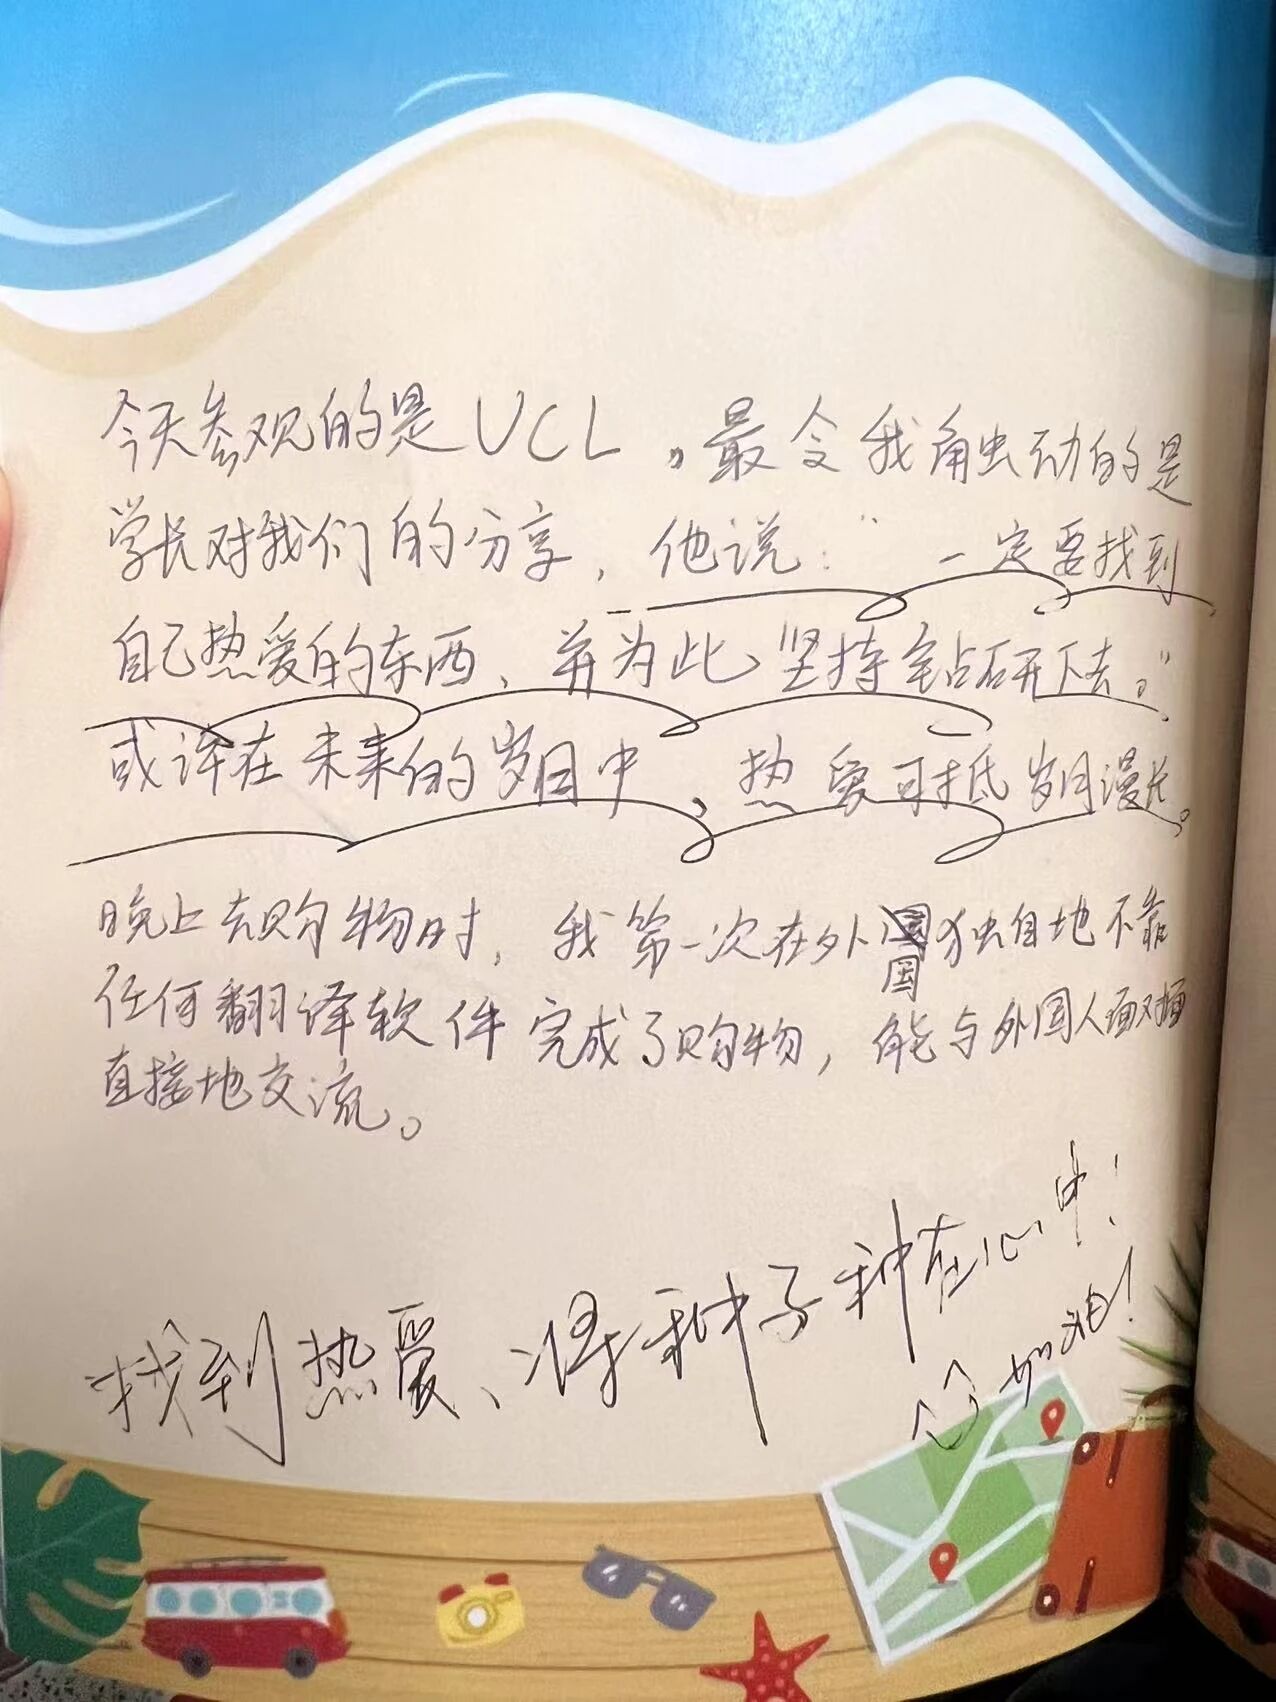 今天参观的是UCL。最令我触动的是
学长对我们的分享，他说：“一定要找到
自己热爱的东西、并为此坚持钻研下去。”
或许在未来的岁月中，热爱可抵岁月漫长。
晚上去购物时，我第一次在外国独自地不靠
任何翻译软件完成了购物，能与外国人面对面
直接地交流。
找到热爱、将种子种在心中！
加油！